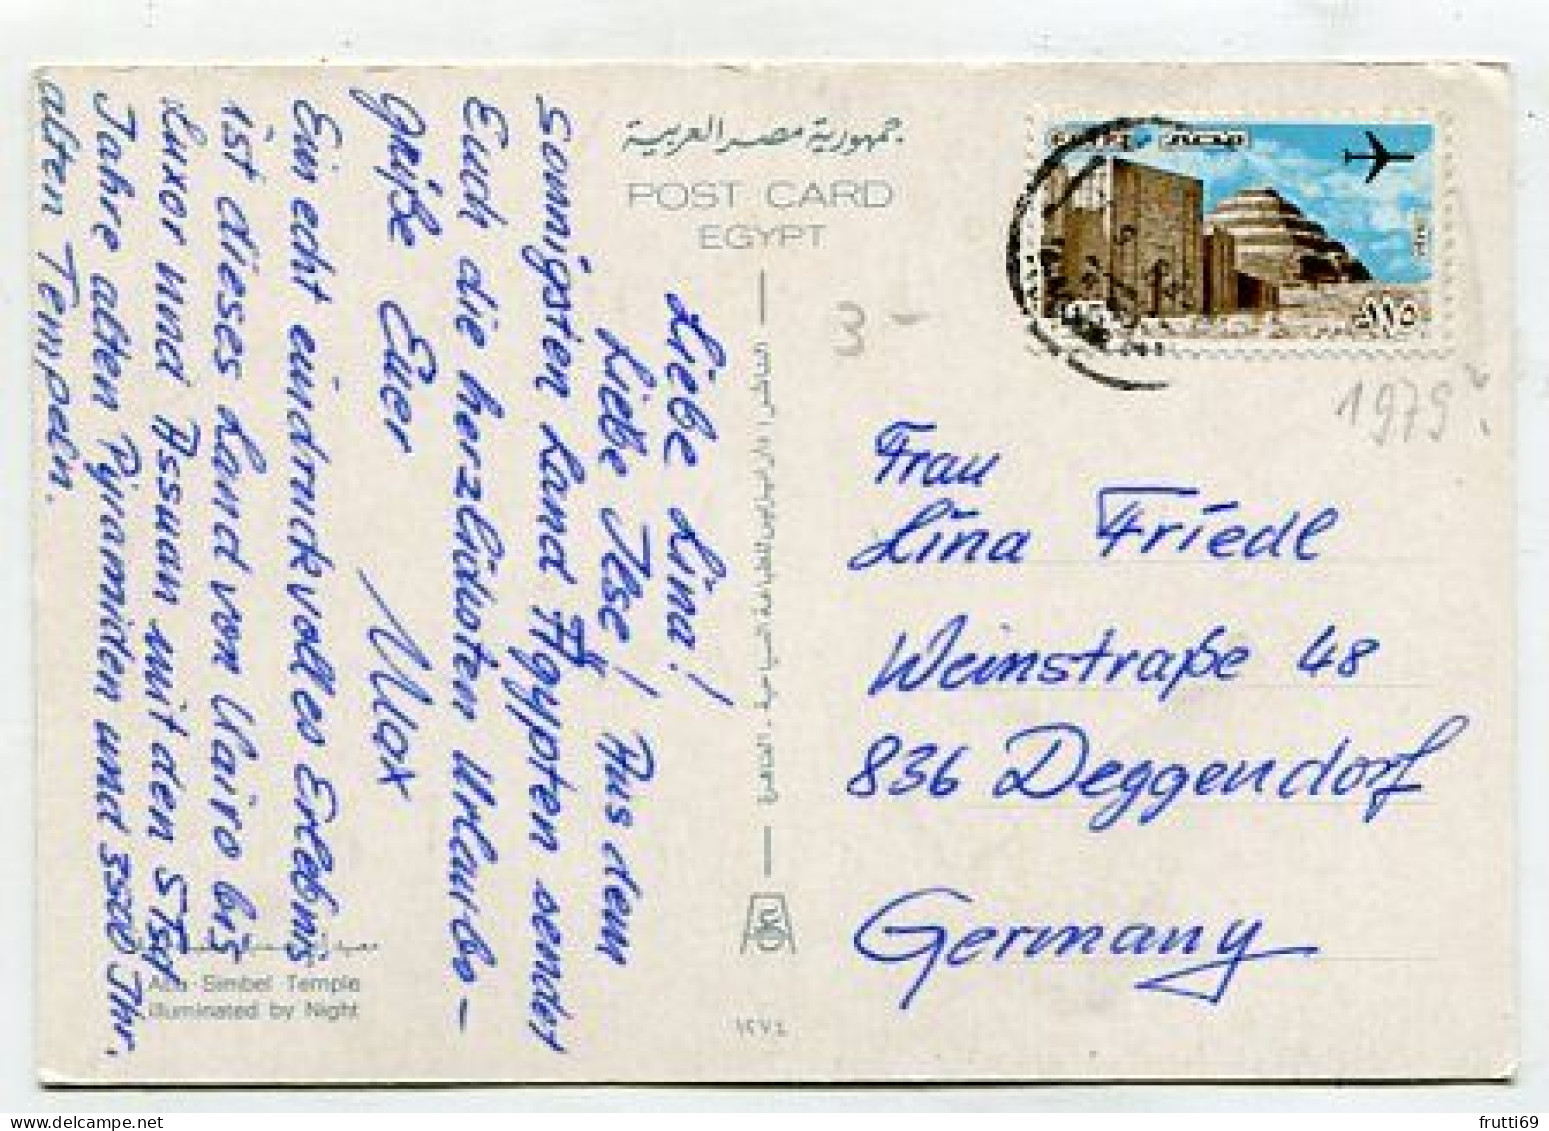 جمهورية مصر العربية
POST CARD
EGYPT
مصر
١١٥
3-
1979?
Liebe Lina!
Liebe Ilse! Aus dem
sonnigsten Land Ägypten sendet
Euch die herzlichsten Urlaubs-
grüße Euer Max
Ein echt eindruckvolles Erlebnis
ist dieses Land von Kairo bis
Luxor und Assuan mit den 5 Tsd
Jahre alten Pyramiden und 3500 Jhr.
alten Tempeln.
Frau
Lina Friedl
Weinstraße 48
836 Deggendorf
Germany
Abu Simbel Temple
illuminated by Night
١٢٧٤
frutti69